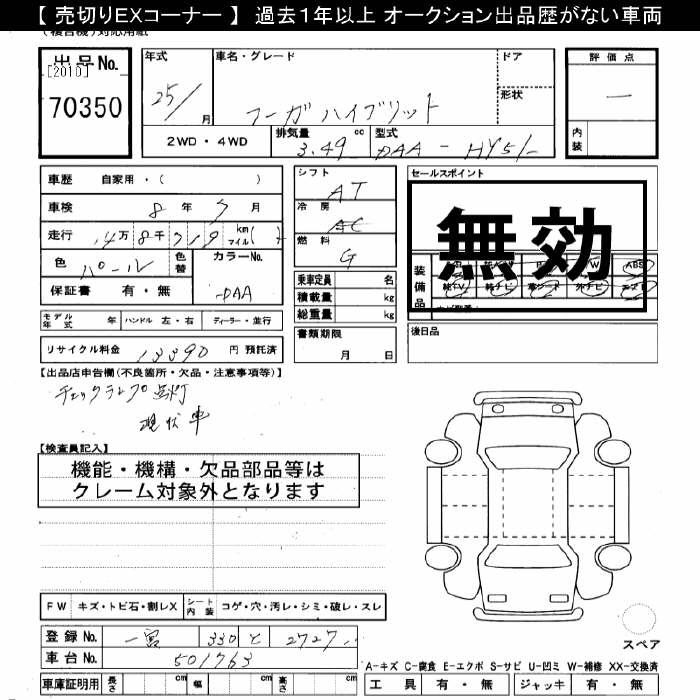 【 売切りEXコーナー 】 過去1年以上 オークション出品歴がない車両
(複合機)対応用紙
出品No.
[2010]
70350
年式
25/
月
車名・グレード
フーガハイブリット
ドア
形状
評価点
—
内装
2WD・4WD
排気量
3.49 cc
型式
DAA - HY51
車歴 自家用・( )
車検 8年7月
走行 14万8千719 km マイル( )
色 パール
色替
カラーNo.
DAA
保証書 有・無
シフト
AT
冷房
AC
燃料
G
乗車定員 名
積載量 kg
総重量 kg
書類期限
月 日
セールスポイント
無効
装備品
ABS
純TV 純ナビ 革シート 外ナビ エアB
後日品
モデル年式 年 ハンドル 左・右 ディーラー・並行
リサイクル料金 13390 円 預託済
【出品店申告欄(不良箇所・欠品・注意事項等)】
チェックランプ点灯
現状車
【検査員記入】
機能・機構・欠品部品等は
クレーム対象外となります
FW キズ・トビ石・割レX シート内装 コゲ・穴・汚レ・シミ・破レ・スレ
登録No. 一宮 330 と 2727
車台No. 501763
車庫証明用 長さ cm 幅 cm 高さ cm
スペア
A-キズ C-腐食 E-エクボ S-サビ U-凹ミ W-補修 XX-交換済
工具 有・無 ジャッキ 有・無